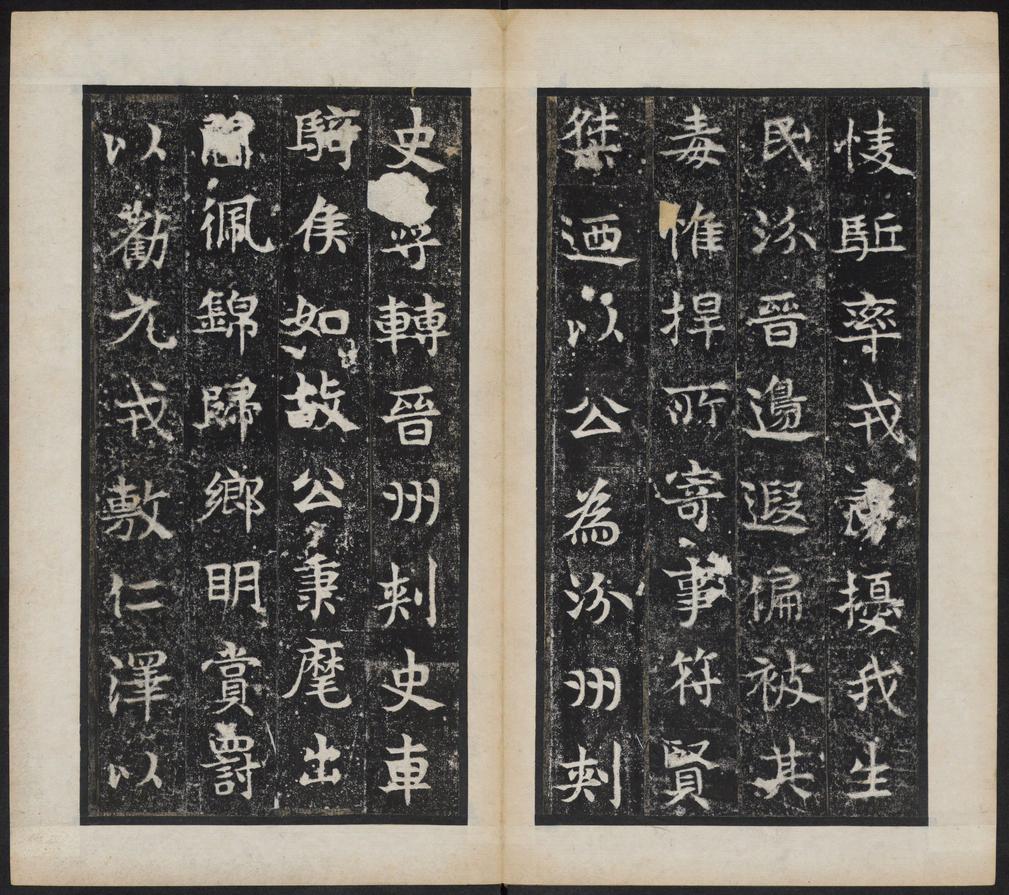 駈率戎擾我生
民汾晉邊遐偏被其
毒惟捍所寄事符賢
桀迺以公為汾州刾
史尋轉晉州刾史車
騎侯如故公秉麾出
佩錦歸鄉明賞爵
以勸元戎敷仁澤以